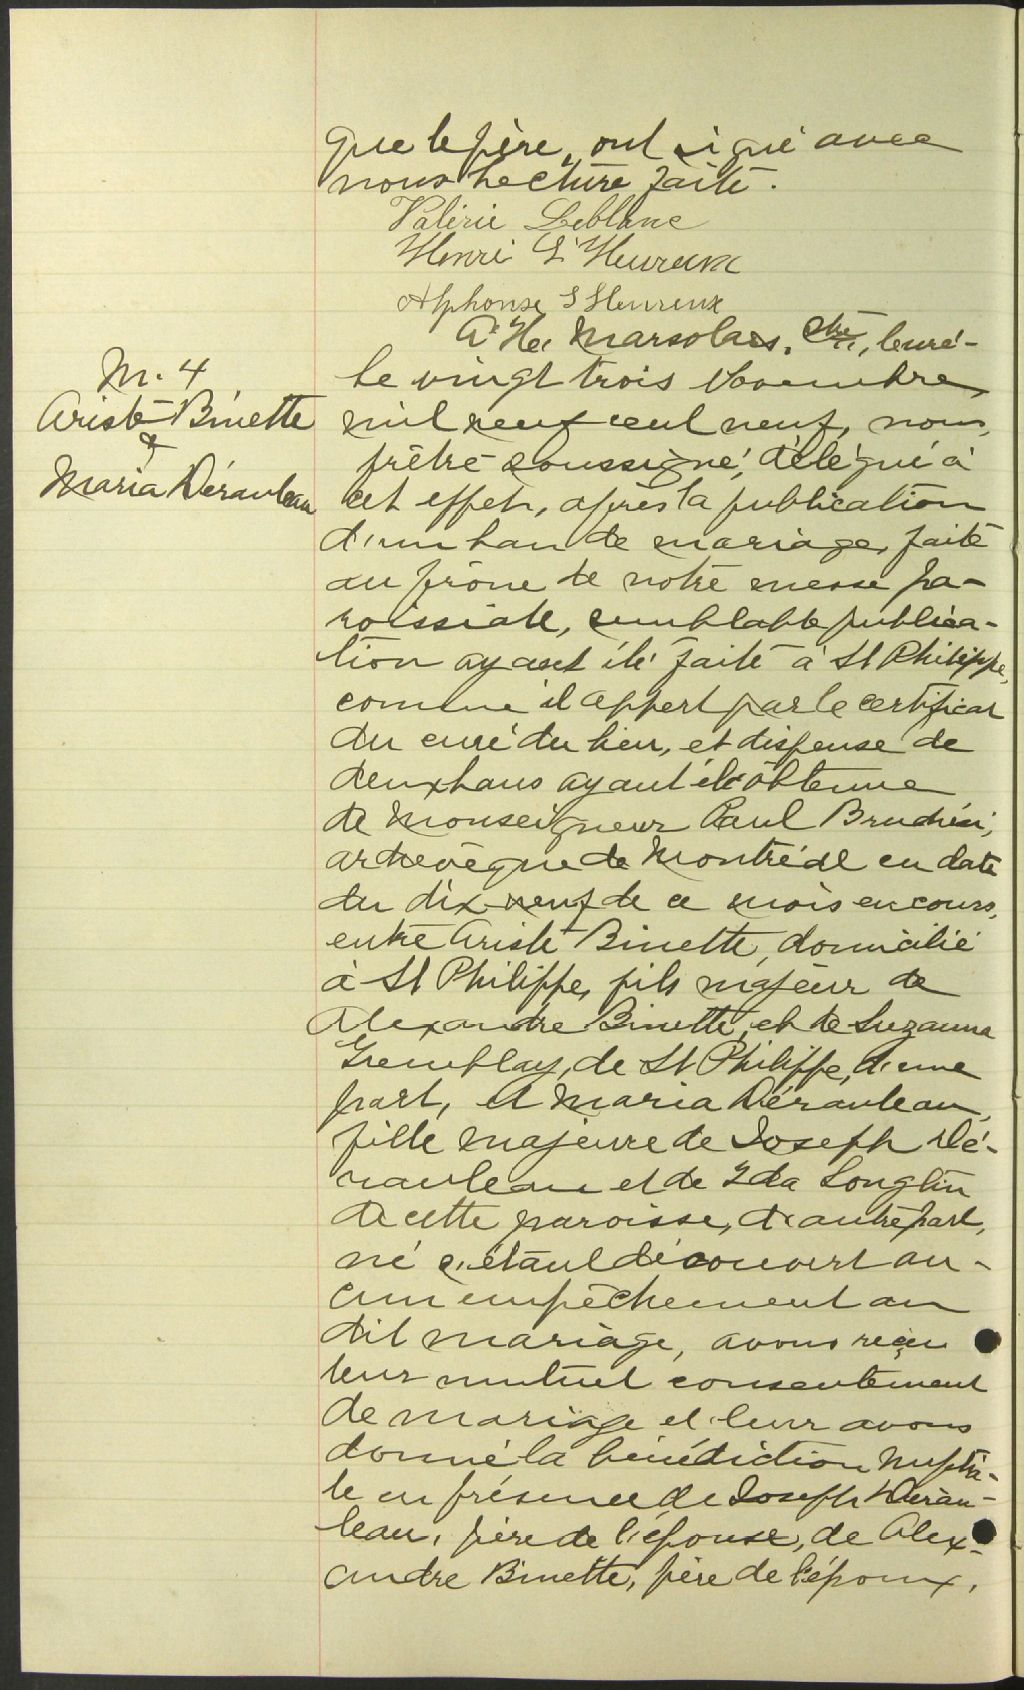 que le père, ont signé avec
nous Lecture faite.
Valérie Leblanc
Henri L'Heureux
Alphonse L'Heureux
A. H. Marsolais, Ptre, curé-
M. 4
Ariste Binette
&
Maria Dérauleau
Le vingt trois Novembre
mil neuf cent neuf, nous,
prêtre soussigné, délégué à
cet effet, après la publication
d'un ban de mariage, faite
au prône de notre messe pa-
roissiale, semblable publica-
tion ayant été faite à St Philippe,
comme il appert par le certificat
du curé du lieu, et dispense de
deux bans ayant été obtenue
de Monseigneur Paul Bruchési,
archevêque de Montréal en date
du dix-neuf de ce mois en cours,
entre Ariste Binette, domicilié
à St Philippe, fils majeur de
Alexandre Binette, et de Suzanna
Tremblay, de St Philippe, d'une
part, et Maria Dérauleau,
fille majeure de Joseph Dé-
rauleau et de Ida Longtin
de cette paroisse, d'autre part,
ne s'étant découvert au-
cun empêchement au
dit mariage, avons reçu
leur mutuel consentement
de mariage et leur avons
donné la bénédiction nuptia-
le en présence de Joseph Dérau-
leau, père de l'épouse, de Alex-
andre Binette, père de l'époux,